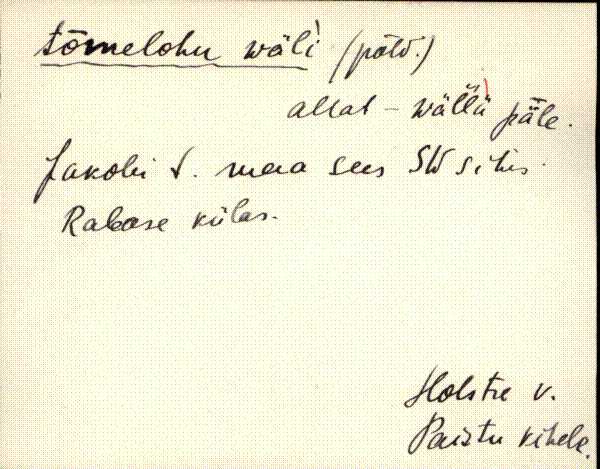 tõmelohu wäli (põld.)
allat – wällä päle.
Jakobi t. maa sees SW sihis.
Rabase külas.
Holstre v.
Paistu kihelk.